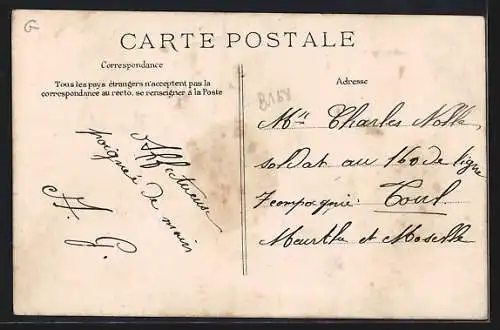 G
CARTE POSTALE
Correspondance
Tous les pays étrangers n'acceptent pas la
correspondance au recto, se renseigner à la Poste
Affectueuse
poignée de main
A. G.
B168
Adresse
Mr Charles
soldat au 160 de ligne
7 compagnie Toul
Meurthe et Moselle